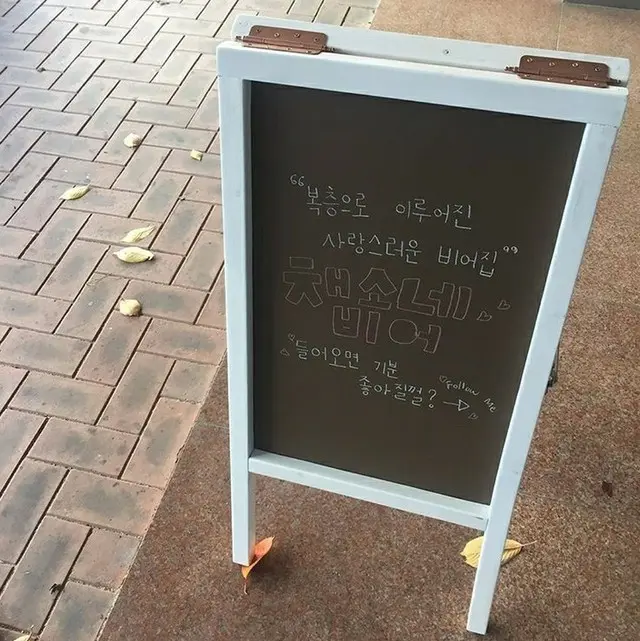 “복층으로 이루어진
사랑스러운 비어집”
챔소네
비어
들어오면 기분
좋아질껄?
Follow Me